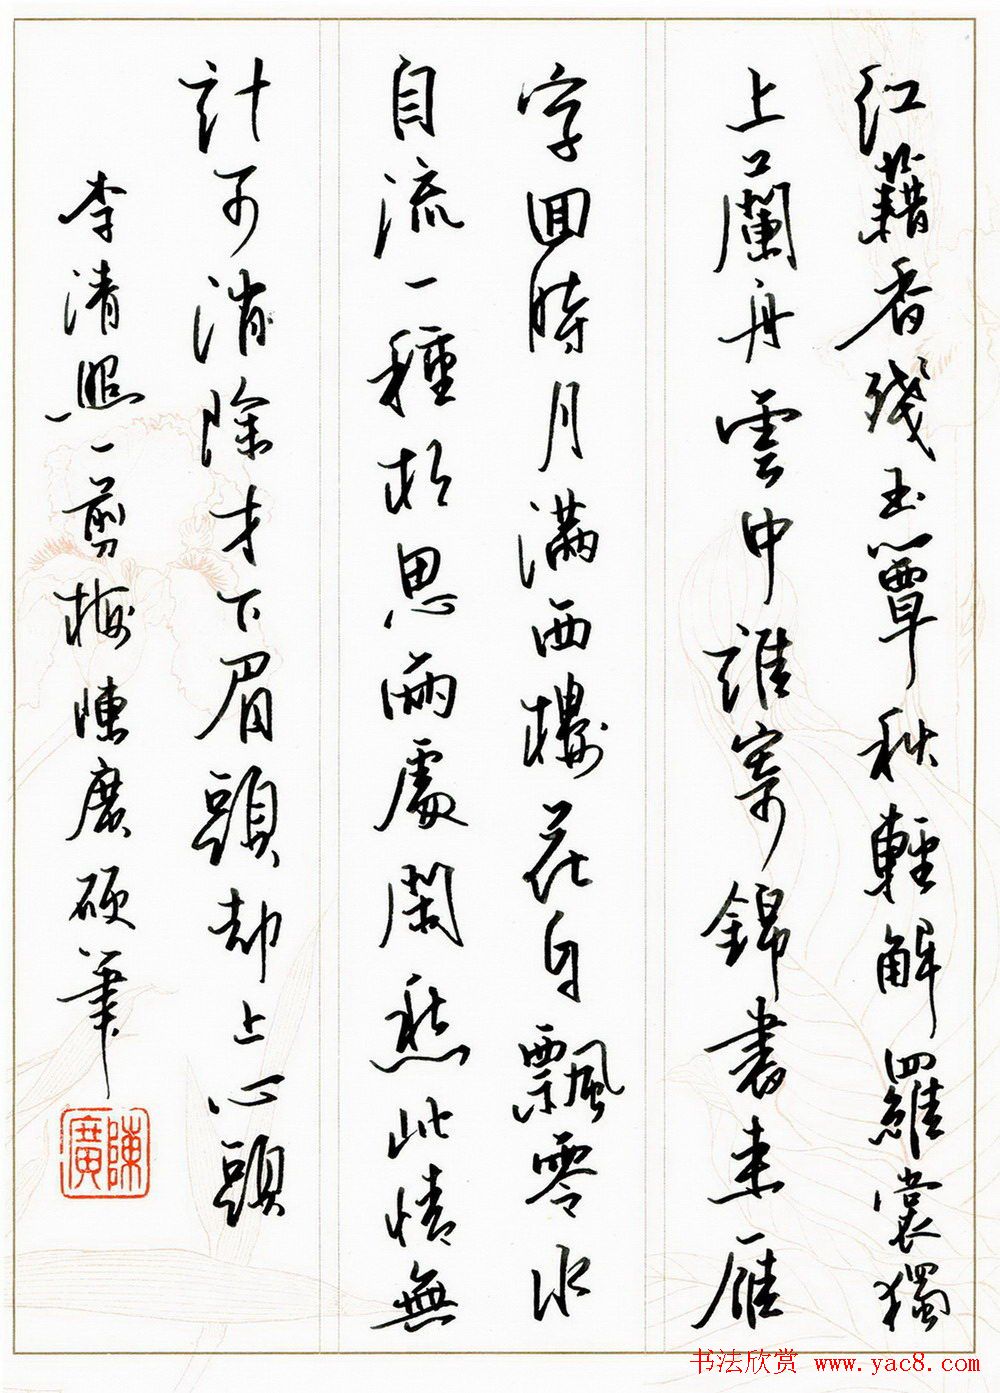 紅藕香殘玉簟秋輕解羅裳獨
上蘭舟雲中誰寄錦書來雁
字囬時月滿西樓花自飄零水
自流一種相思兩處閑愁此情無
計可消除才下眉頭却上心頭
李清照一剪梅陳廣硬筆
陳廣
书法欣赏 www.yac8.com